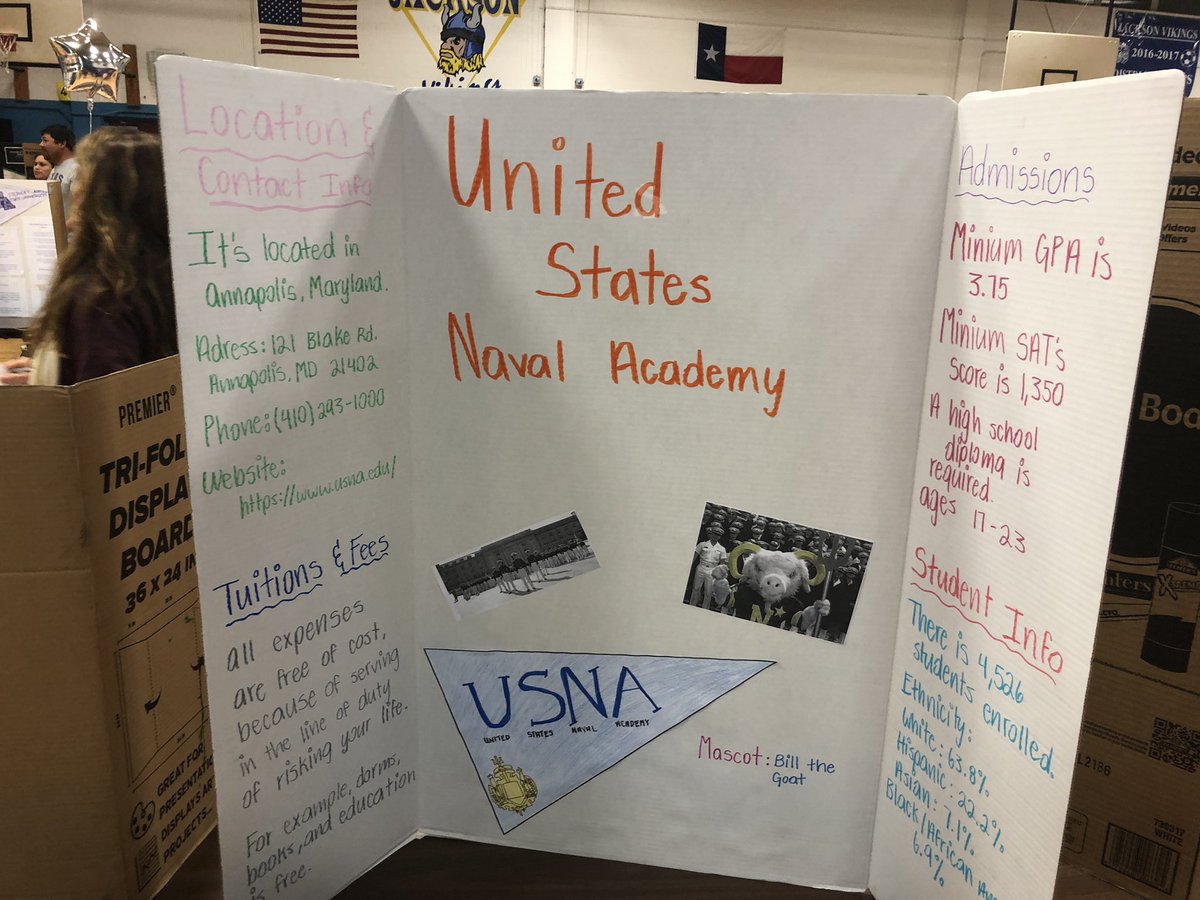 JACKSON
VIKINGS
JACKSON VIKINGS
2016-2017
Location &
Contact Info
It's located in
Annapolis, Maryland.
Adress: 121 Blake Rd.
Annapolis, MD 21402
Phone: (410) 293-1000
Website:
https://www.usna.edu/
Tuitions & Fees
all expenses
are free of cost,
because of serving
in the line of duty
of risking your life.
For example, dorms,
books, and education
is free.
United
States
Naval Academy
USNA
UNITED STATES NAVAL ACADEMY
Mascot: Bill the
Goat
Admissions
Minium GPA is
3.75
Minium SAT's
Score is 1,350
A high school
diploma is
required.
ages 17-23
Student Info
There is 4,526
students enrolled.
Ethnicity:
White: 63.8%
Hispanic: 22.2%
Asian: 7.1%
Black/African
6.9%
PREMIER®
TRI-FOL
DISPLA
BOARD
36 X 24 IN
GREAT FOR
PRESENTATI
DISPLAYS AR
PROJECTS
Bod
L2186
736317
WHITE